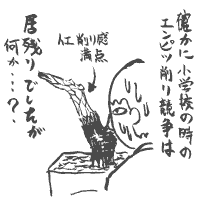 確かに小学校の時の
エンピツ削り競争は
人工削り感
満点
居残りでしたが
何か・・・?